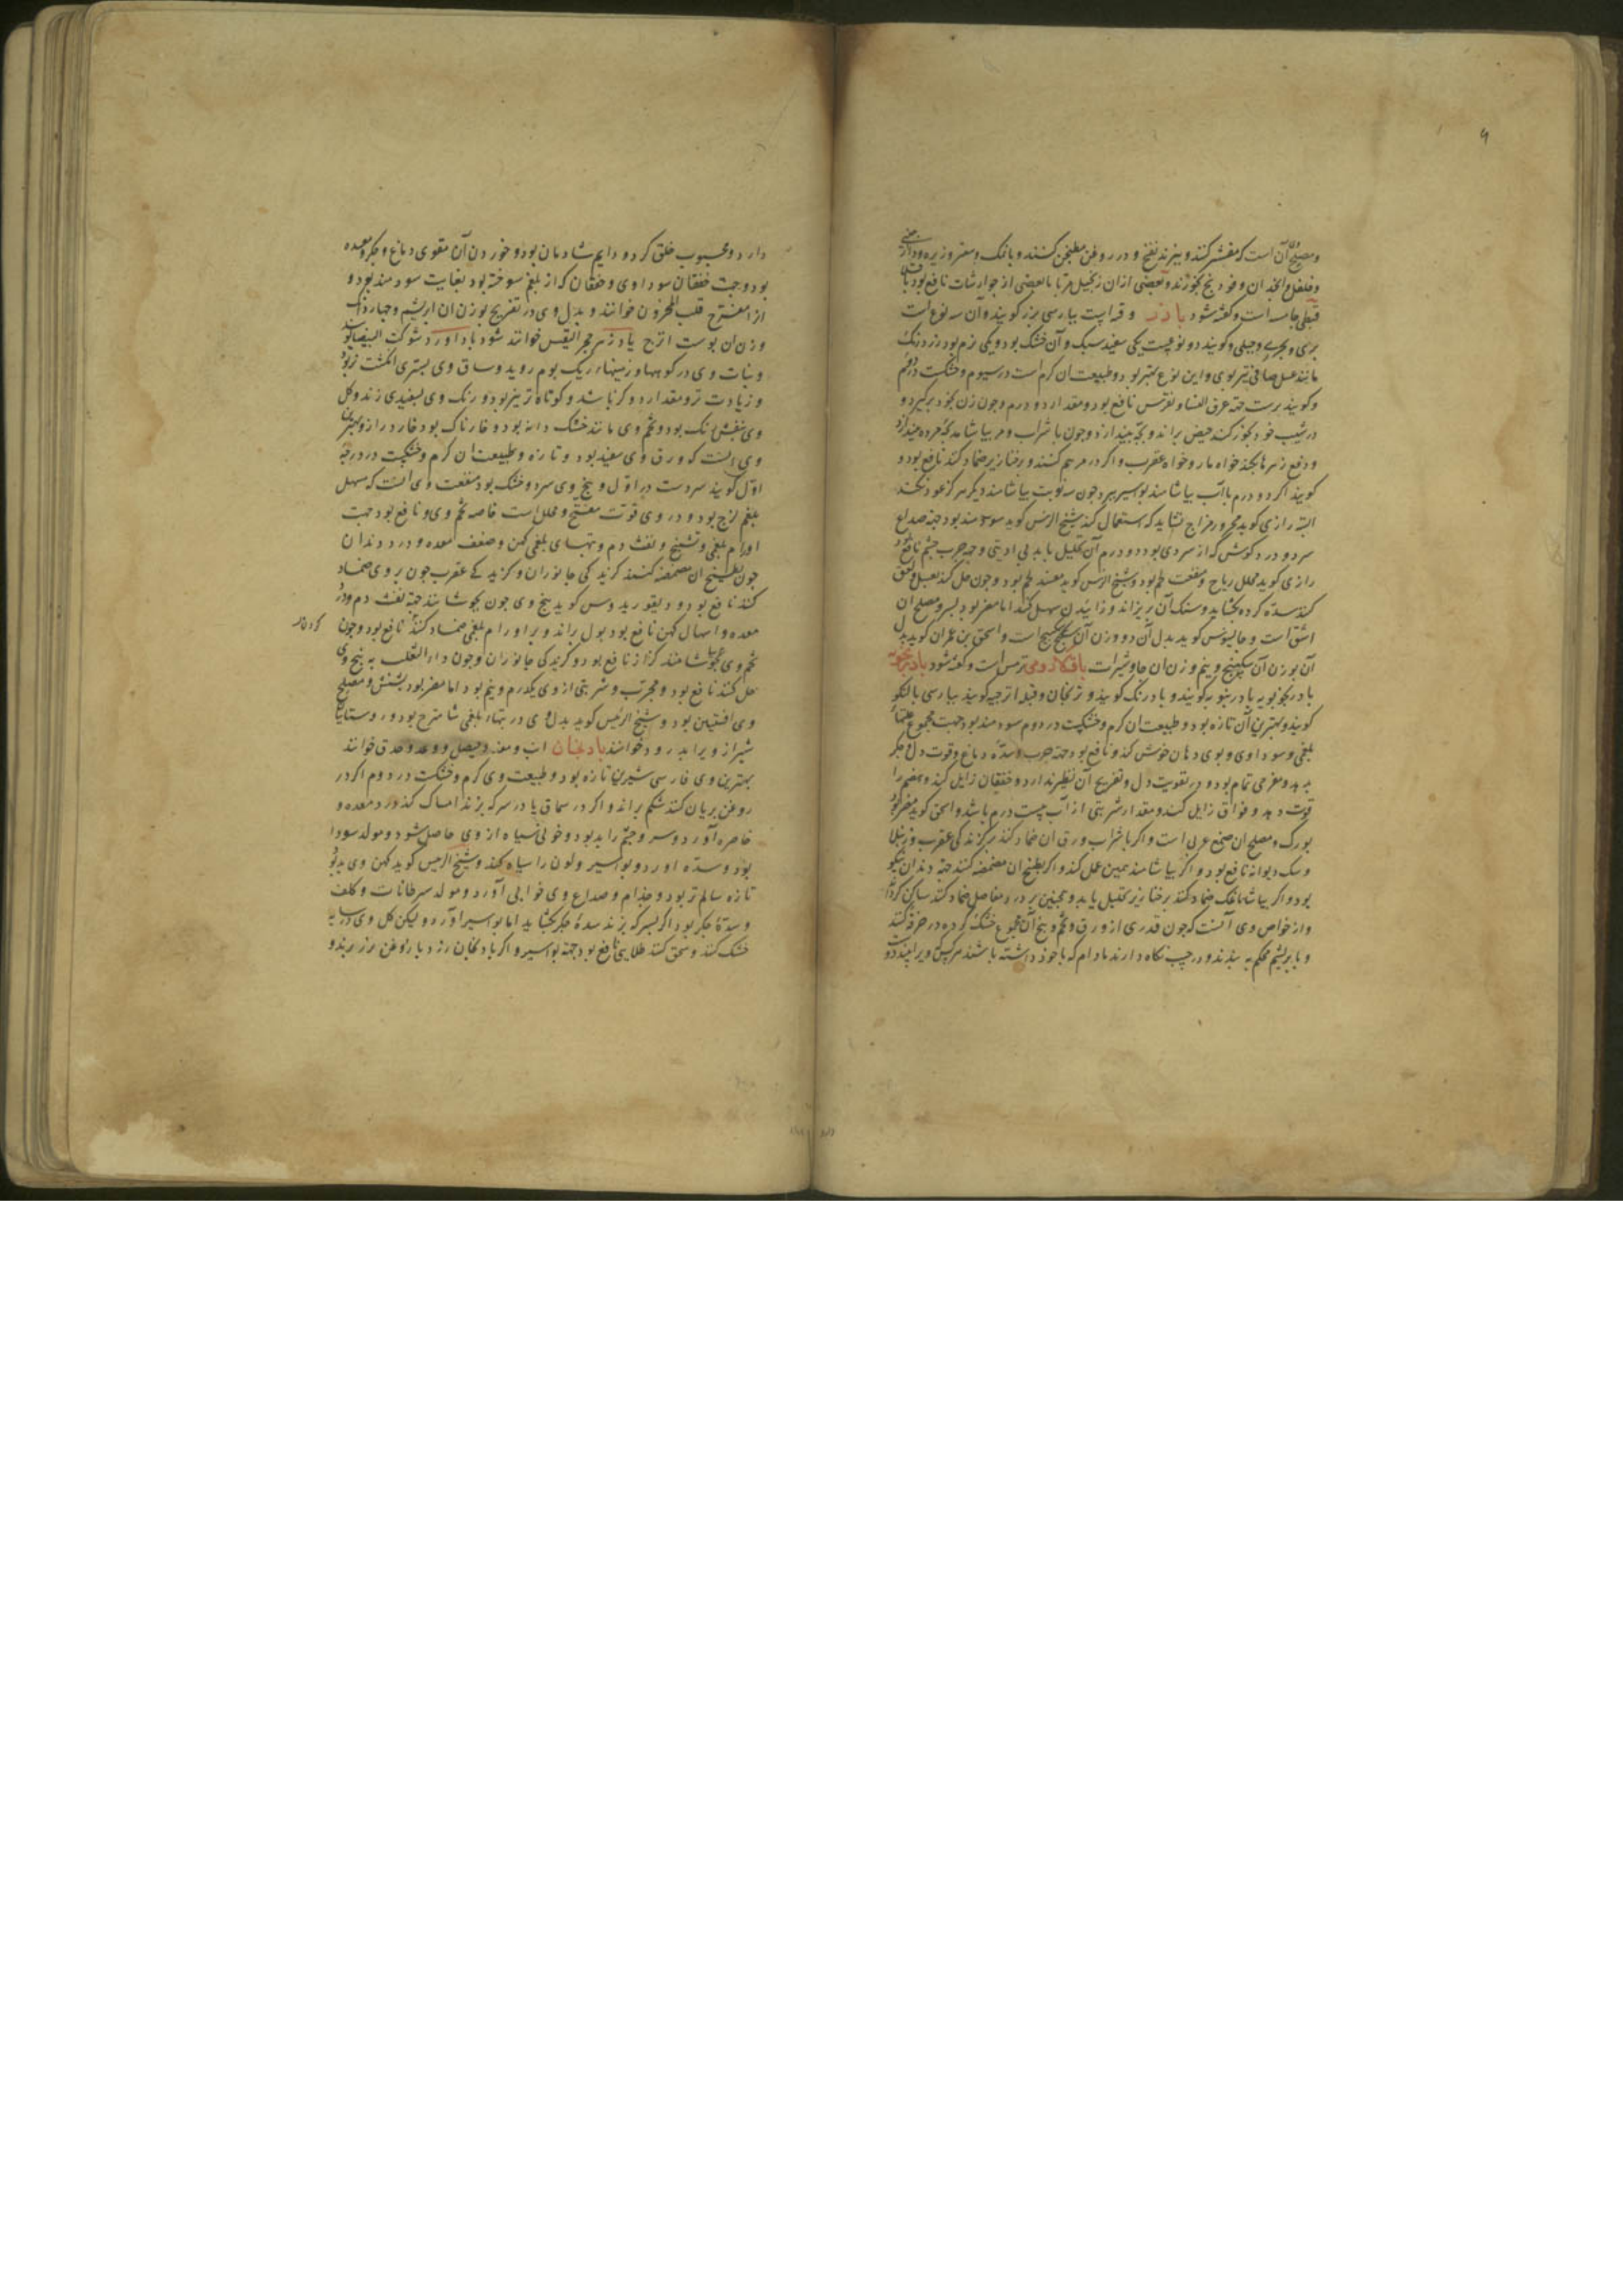 ۹
ومصلح آن است که مقشر کنند و بپزند نضج و در روغن مطبخن کنند و با نمک و صعتر و زیره و دارچینی
وفلفل و انجدان و فودنج بخورند و بعضی ازان زنجبیل مربا یا بعضی از جوارشات نافع بود باقلی
قبطی جامسه است و گفته شود بازرد و قنه است بپارسی بیرزد گویند و آن سه نوع است
بری و بحری و جبلی و گویند دو نوعست یکی سفید سبک و آن خشک بود و یکی نرم بود زرد رنگ
مانند عسل صافی تیز بوی و این نوع بهتر بود و طبیعت ان گرم است در سیوم و خشکست در دوم
و گویند ترست جهة عرق النسا و نقرس نافع بود و مقدار دو درم و چون زن بخود برگیرد و
در شیب خود بخور کند حیض براند و بچه بیندازد و چون با شراب و مر بیاشامد بچه مرده بیندازد
و دفع زهرها بکند خواه مار و خواه عقرب و اگر در مرهم کنند و بر خنازیر ضماد کنند نافع بود و
گویند اگر دو درم با آب بیاشامند بواسیر ببرد چون سه نوبت بیاشامند دیگر هرگز عود نکند
البته رازی گوید محرور مزاج نشاید که استعمال کند شیخ الرئیس گوید سودمند بود جهة صداع
سرد و درد گوش که از سردی بود دو درم آن تحلیل یابد بی اذیتی و جهة جرب چشم نافع بود
رازی گوید محلل ریاح و منفعت لحم بود و شیخ الرئیس گوید مفسد لحم بود و چون حل کند بعسل و لعق
کنند سده گرده بگشاید و سنک آن بریزاند و زائیدن سهل کند اما مضر بود بسر و مصلح ان
اشق است و جالینوس گوید بدل آن دو وزن آن سکبینج است و اسحق بن عمران گوید بدل
آن بوزن آن سکبینج و نیم وزن ان جاوشیرات باقلاء رومی ترمس است و گفته شود بادرنجبویه
بادرنجبویه بادرنبویه گویند و بادرنک گویند و ترنجان و بقله اترجیه گویند بپارسی بالنکو
گویند و بهترین آن تازه بود و طبیعت ان گرم و خشکیست در دوم سودمند بود جهت مجموع علتهاء
بلغمی و سوداوی و بوی دهان خوش کند و نافع بود جهة جرب و سدّه دماغ و قوت دل و جگر
بدهد و مفرحی تمام بود و در تقویت دل و تفریح آن نظیر ندارد و خفقان زایل کند و هضم را
قوت دهد و فواق زایل کند و مقدار شربتی از آب بیست درم باشد و اسحق گوید مضر بود
بورک و مصلح ان صمغ عربی است و اگر با شراب ورق ان ضماد کنند بر گزندگی عقرب و رتیلا
و سک دیوانه نافع بود و اگر بیاشامند همین عمل کند و اگر بطبیخ ان مضمضه کنند جهة دندان نیکو
بود و اگر بیاشامند با نمک ضماد کنند بر خنازیر تحلیل یابد و همچنین بر درد مفاصل ضماد کنند ساکن گرداند
و از خواص وی آنست که چون قدری از ورق و تخم و بیخ آن مجموع خشک کرده در خرقه کنند
و با بریشم محکم به بندند و در جیب نگاه دارند مادام که با خود داشته باشند هر کس ویرا بیند دوست
دارد و محبوب خلق گردد و دایم شادمان بود و خوردن آن مقوی دماغ و جگر و معده
بود و جهت خفقان سوداوی و خفقان که از بلغم سوخته بود بغایت سودمند بود و
از امفرّح قلب المحزون خوانند و بدل وی در تفریح بوزن ان ابریشم و چهار دانک
وزن ان پوست اترج بادزهر حجر القیس خوانند شود باداورد شوکت البیضا گویند
و نبات وی در کوهها و زمینهاء ریک بوم روید و ساق وی بستبری انگشت نر بود
و زیادت تر و مقدار دو گز باشد و کوتاه تر نیز بود و رنک وی بسفیدی زند و کل
وی بنفش رنک بود و تخم وی مانند خشک دانه بود و خارناک بود و خار دراز و بهترین
وی انست که ورق وی سفید بود و تازه و طبیعت ان گرم و خشکیست در درجه
اوّل گویند سردست در اوّل و بیخ وی سرد و خشک بود منفعت وی انست که مسهل
بلغم لزج بود و در وی قوت مفتح و محلل است خاصه تخم وی و نافع بود جهت
اورام بلغمی و تشنج و نفث دم و تبهای بلغمی کهن و ضعف معده و درد دندان
چون بطبیخ ان مضمضه کنند گزندگی جانوران و گزندگی عقرب چون بر وی ضماد
کنند نافع بود و دیسقوریدوس گوید بیخ وی چون بجوشانند جهة نفث دم و درد
معده و اسهال کهن نافع بود بول براند و بر اورام بلغمی ضماد کنند نافع بود و چون
کودکان
تخم وی بیاشامند کزاز نافع بود و گزندگی جانوران و چون داء الثعلب به بیخ وی
حل کنند نافع بود و مجرّب و شربتی از وی یکدرم و نیم بود اما مضر بود بشش و مصلح
وی افسنتین بود و شیخ الرئیس گوید بدل وی در تبهاء بلغمی شاهترج بود و روستاییان
شیراز ویرا بدرود خوانند بادنجان انب و مغد و حیصل و وغد و حدق خوانند
بهترین وی فارسی شیرین تازه بود و طبیعت وی گرم و خشکست در دوم اگر در
روغن بریان کنند شکم براند و اگر در سماق یا در سرکه پزند امساک کند درد معده و
خاصره آورد و سر و چشم را بد بود و خونی سیاه از وی حاصل شود و مولد سودا
بود و سدّه اورد و بواسیر و لون را سیاه کند و شیخ الرئیس گوید کهن وی بد بود
تازه سالم تر بود و جذام و صداع و بی خوابی آورد و مولد سرطانات و کلف
و سدّهٔ جگر بود اگر بسرکه پزند سدهٔ جگر بگشاید اما بواسیر آورد و لیکن کل وی در سایه
خشک کنند و سحق کنند طلایی نافع بود جهة بواسیر و اگر بادنجان زرد با روغن بزر بریزند و